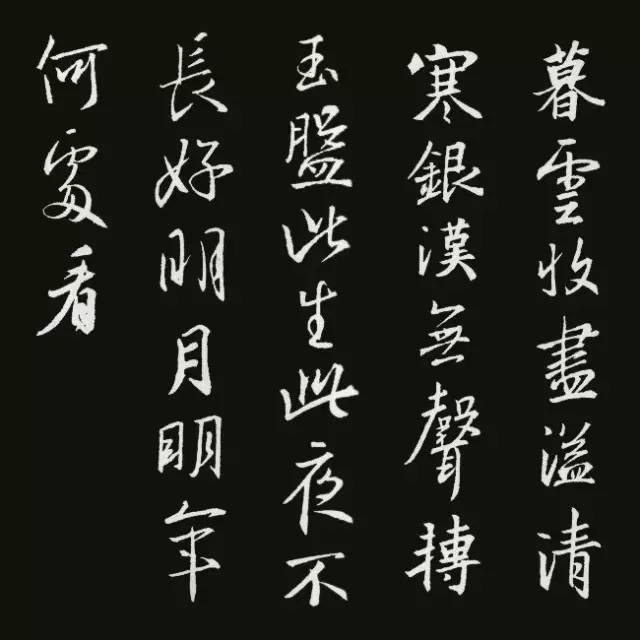 暮雲收盡溢清
寒銀漢無聲摶
玉盤此生此夜不
長好明月明年
何處看